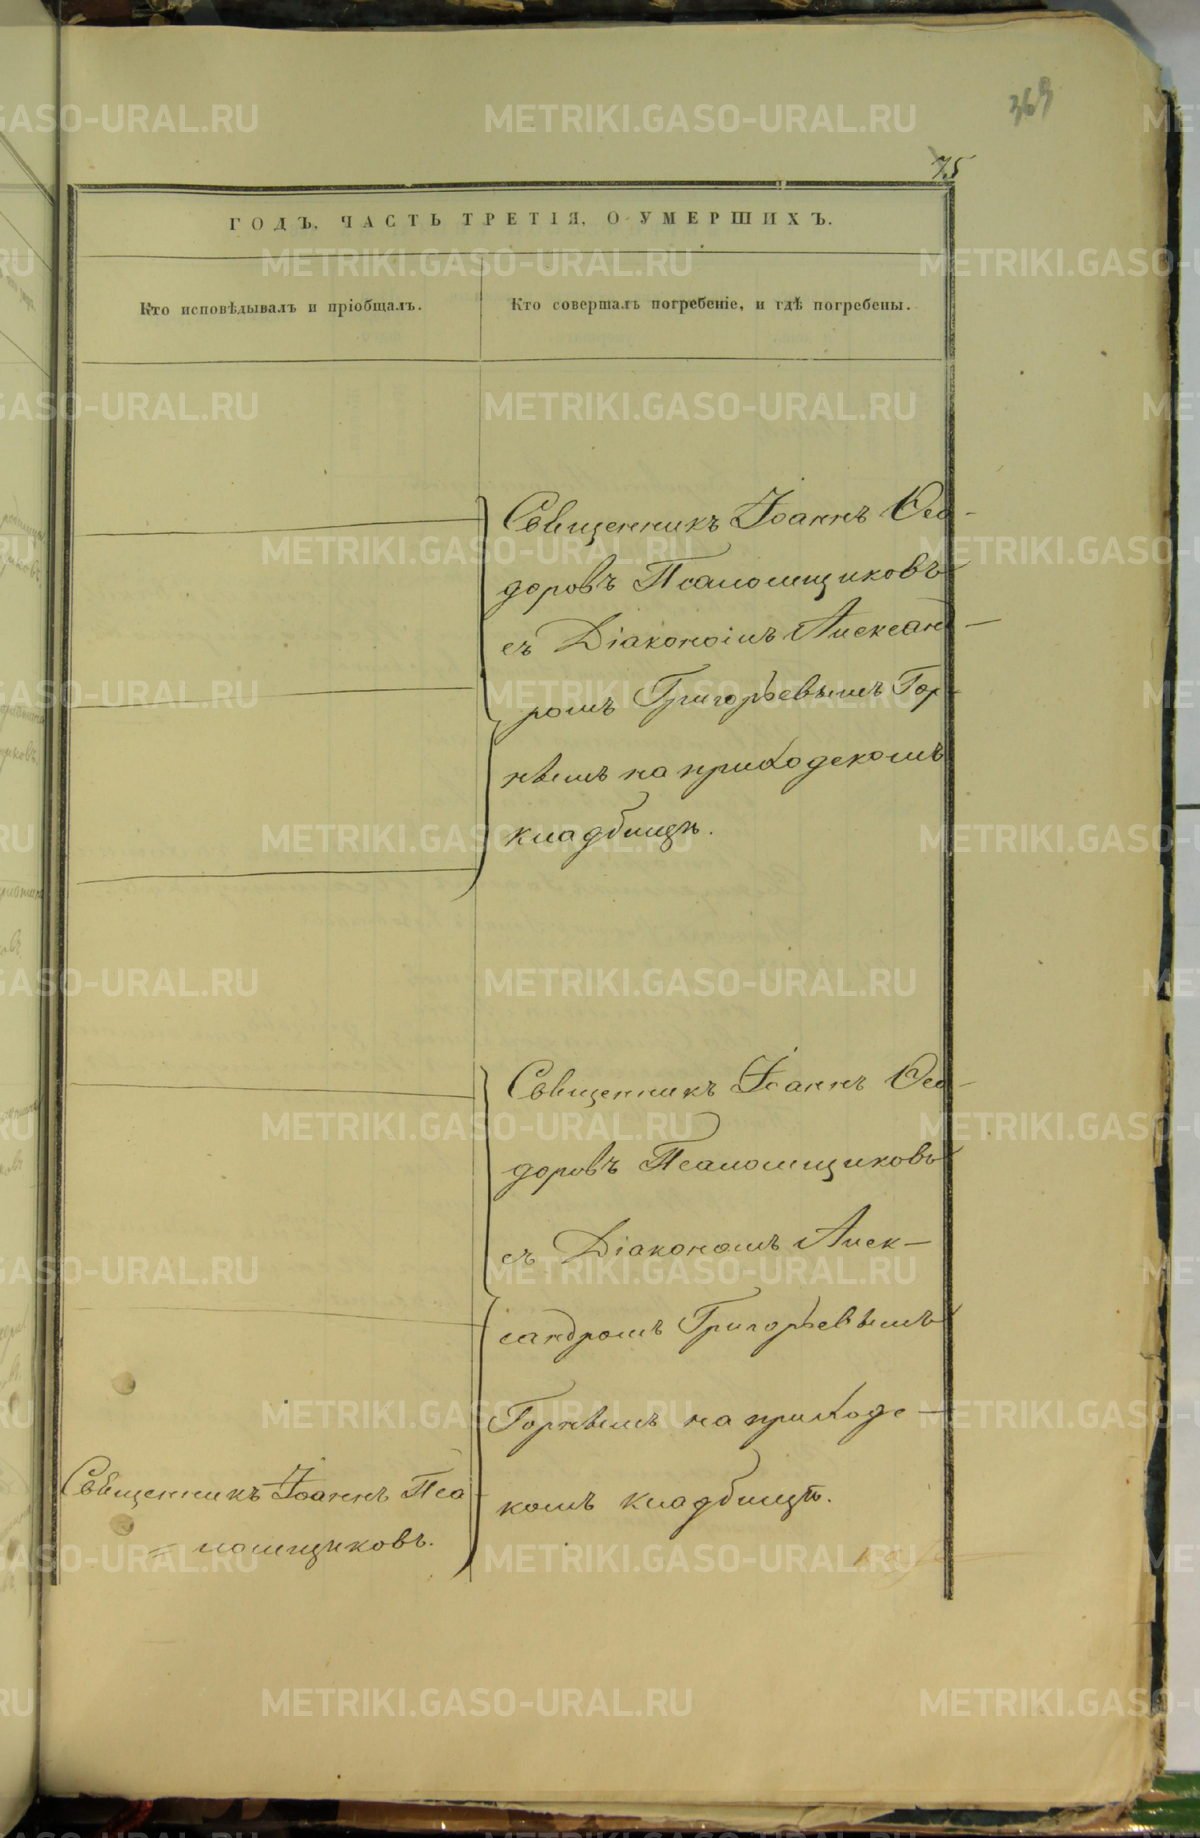 369
75
ГОДЪ, ЧАСТЬ ТРЕТІЯ, О УМЕРШИХЪ.
Кто исповѣдывалъ и пріобщалъ.
Кто совершалъ погребеніе, и гдѣ погребены.
Священникъ Іоаннъ Ѳео-
доровъ Псаломщиковъ
съ Діакономъ Александ-
ромъ Григорьевымъ Гор-
нымъ на приходскомъ
кладбищѣ.
Священникъ Іоаннъ Ѳео-
доровъ Псаломщиковъ
съ Діакономъ Алек-
сандромъ Григорьевымъ
Горнымъ на приходс-
комъ кладбищѣ.
Священникъ Іоаннъ Пса-
=ломщиковъ.
METRIKI.GASO-URAL.RU